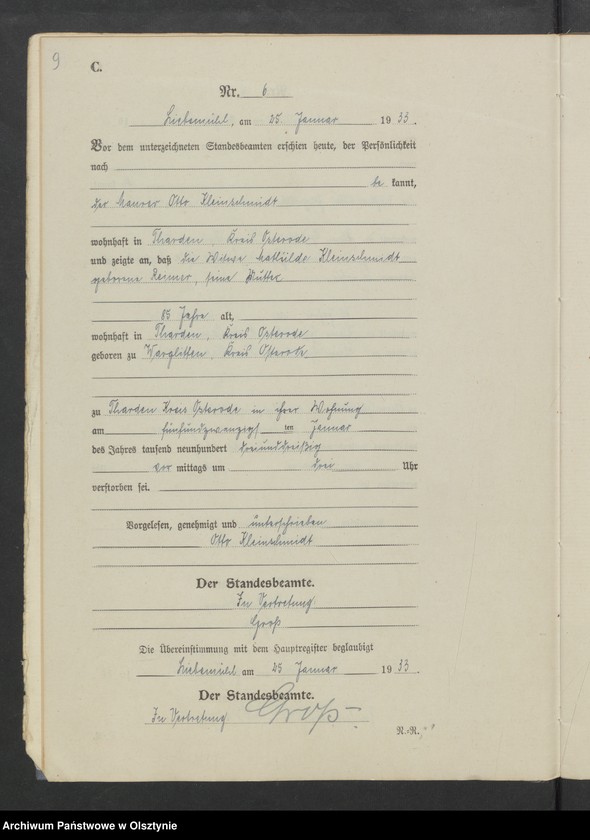 9
C.
Nr. 6
Liebemühl, am 25. Januar 1933.
Vor dem unterzeichneten Standesbeamten erschien heute, der Persönlichkeit
nach
be kannt,
der Maurer Otto Kleinschmidt
wohnhaft in Tharden, Kreis Osterode
und zeigte an, daß die Witwe Mathilde Kleinschmidt
geborene Renner, seine Mutter
85 Jahre alt,
wohnhaft in Tharden, Kreis Osterode
geboren zu Warglitten, Kreis Osterode
zu Tharden Kreis Osterode in ihrer Wohnung
am fünfundzwanzigsten Januar
des Jahres tausend neunhundert dreiunddreißig
vor mittags um drei Uhr
verstorben sei.
Vorgelesen, genehmigt und unterschrieben
Otto Kleinschmidt
Der Standesbeamte.
In Vertretung
Groß
Die Übereinstimmung mit dem Hauptregister beglaubigt
Liebemühl am 25 Januar 1933.
Der Standesbeamte.
In Vertretung Groß
R.-R.
Archiwum Państwowe w Olsztynie